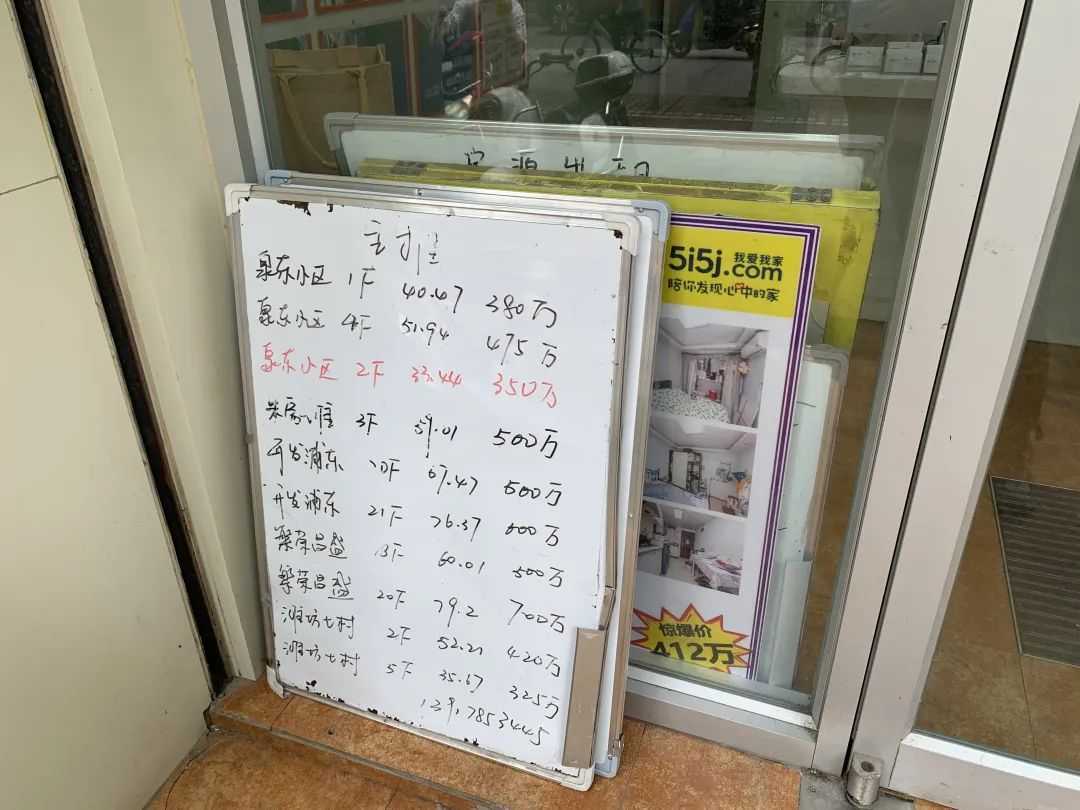 主推
泉东小区 1F 40.47 380万
泉东小区 4F 51.94 475万
泉东小区 2F 33.44 350万
3F 59.01 500万
开发浦东 10F 67.47 500万
开发浦东 21F 76.37 600万
繁荣昌盛 13F 60.01 500万
繁荣昌盛 20F 79.2 700万
潍坊七村 2F 52.21 420万
潍坊七村 5F 35.67 325万
房源出租
5i5j.com 我爱我家
陪你发现心中的家
惊爆价
412万